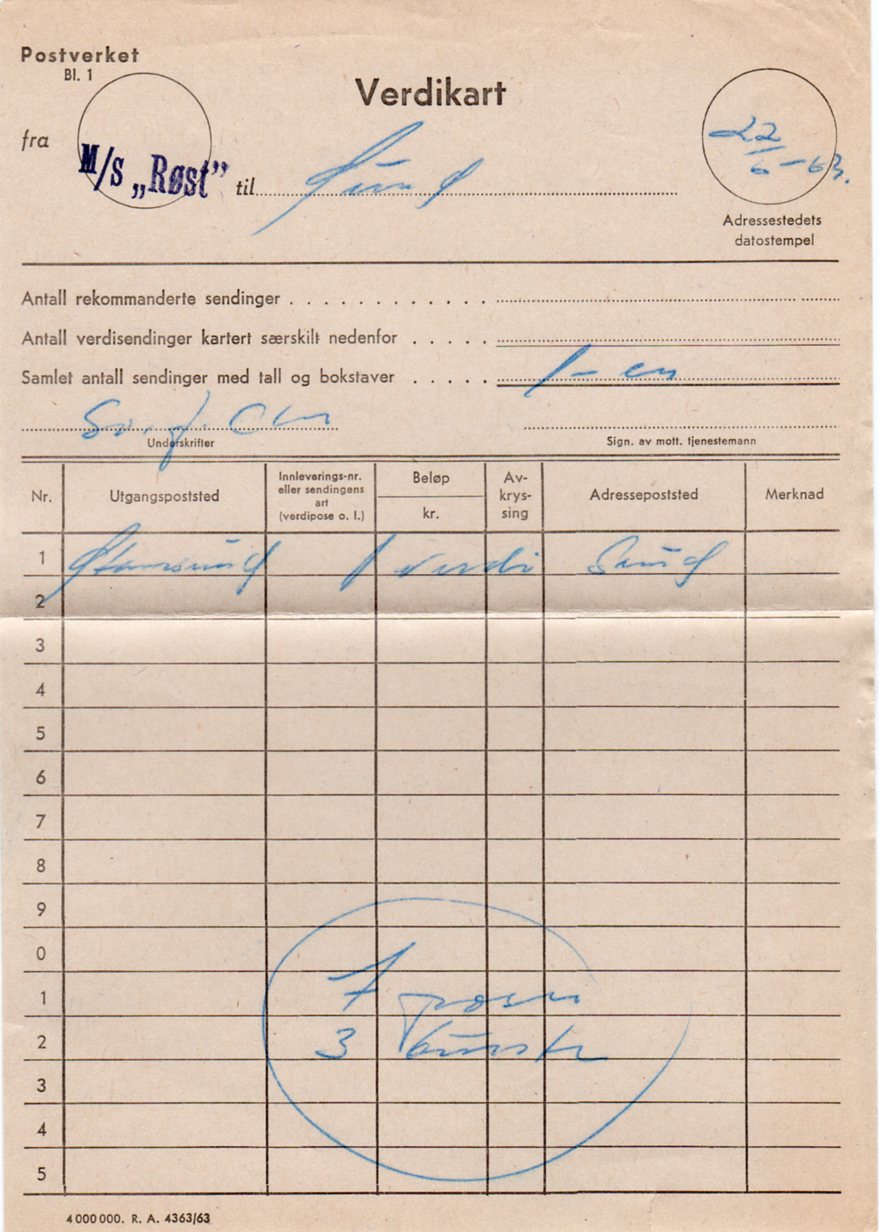 Postverket
Bl. 1
Verdikart
fra M/S „Røst” til Sund
22/6-63.
Adressestedets
datostempel
Antall rekommanderte sendinger
Antall verdisendinger kartert særskilt nedenfor
Samlet antall sendinger med tall og bokstaver 1 - en
Underskrifter
Sign. av mott. tjenestemann
Nr. Utgangspoststed Innleverings-nr. eller sendingens art (verdipose o. l.) Beløp kr. Av-krys-sing Adressepoststed Merknad
1 Stamsund 1 verdi Sund
2
3
4
5
6
7
8
9
0
1 7 poser
2 3 bunter
3
4
5
4 000 000. R. A. 4363/63